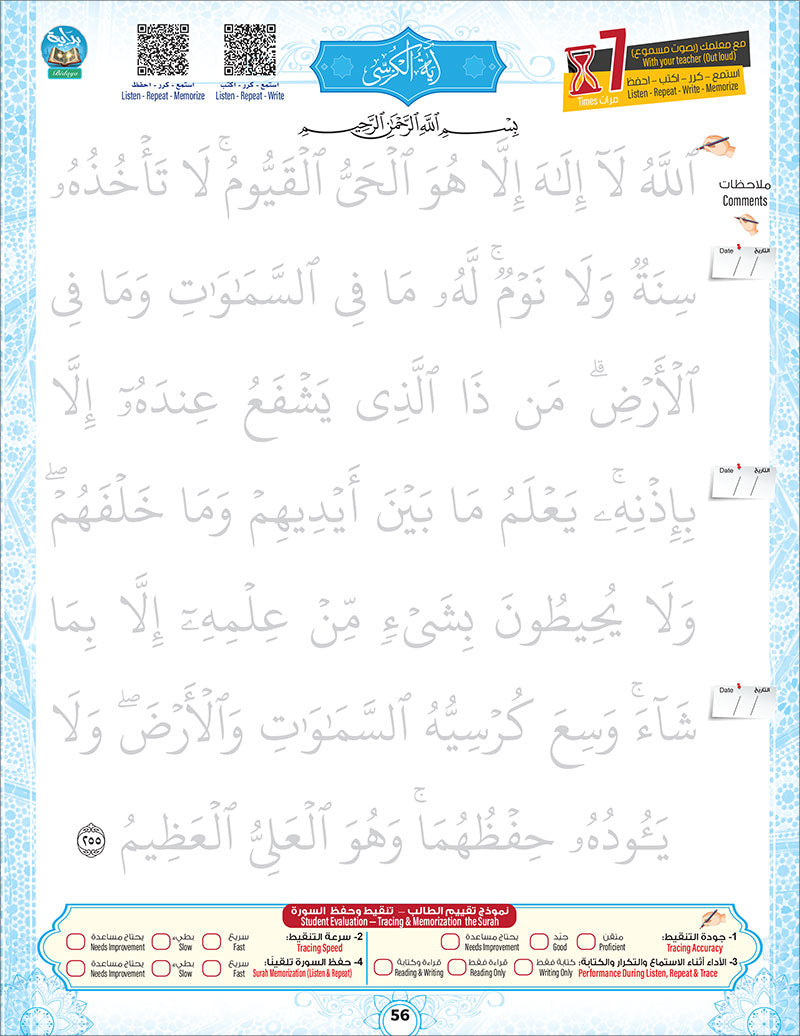 بداية
Bidaya
استمع - كرر - احفظ
Listen - Repeat - Memorize
استمع - كرر - اكتب
Listen - Repeat - Write
آيَةُ الْكُرْسِيّ
7
Times مرات
مع معلمك (بصوت مسموع)
With your teacher (Out loud)
استمع - كرر - اكتب - احفظ
Listen - Repeat - Write - Memorize
بِسْمِ اللَّهِ الرَّحْمَٰنِ الرَّحِيمِ
ٱللَّهُ لَآ إِلَـٰهَ إِلَّا هُوَ ٱلْحَىُّ ٱلْقَيُّومُ ۚ لَا تَأْخُذُهُۥ
سِنَةٌ وَلَا نَوْمٌ ۚ لَّهُۥ مَا فِى ٱلسَّمَـٰوَٰتِ وَمَا فِى
ٱلْأَرْضِ ۗ مَن ذَا ٱلَّذِى يَشْفَعُ عِندَهُۥٓ إِلَّا
بِإِذْنِهِۦ ۚ يَعْلَمُ مَا بَيْنَ أَيْدِيهِمْ وَمَا خَلْفَهُمْ ۖ
وَلَا يُحِيطُونَ بِشَىْءٍ مِّنْ عِلْمِهِۦٓ إِلَّا بِمَا
شَآءَ ۚ وَسِعَ كُرْسِيُّهُ ٱلسَّمَـٰوَٰتِ وَٱلْأَرْضَ ۖ وَلَا
يَـُٔودُهُۥ حِفْظُهُمَا ۚ وَهُوَ ٱلْعَلِىُّ ٱلْعَظِيمُ ٢٥٥
ملاحظات
Comments
Date / / التاريخ
Date / / التاريخ
Date / / التاريخ
نموذج تقييم الطالب – تنقيط وحفظ السورة
Student Evaluation – Tracing & Memorization the Surah
1- جودة التنقيط: متقن جيّد يحتاج مساعدة
Tracing Accuracy Proficient Good Needs Improvement
2- سرعة التنقيط: سريع بطيء يحتاج مساعدة
Tracing Speed Fast Slow Needs Improvement
3- الأداء أثناء الاستماع والتكرار والكتابة: كتابة فقط قراءة فقط قراءة وكتابة
Performance During Listen, Repeat & Trace Writing Only Reading Only Reading & Writing
4- حفظ السورة تلقينًا: سريع بطيء يحتاج مساعدة
Surah Memorization (Listen & Repeat) Fast Slow Needs Improvement
56